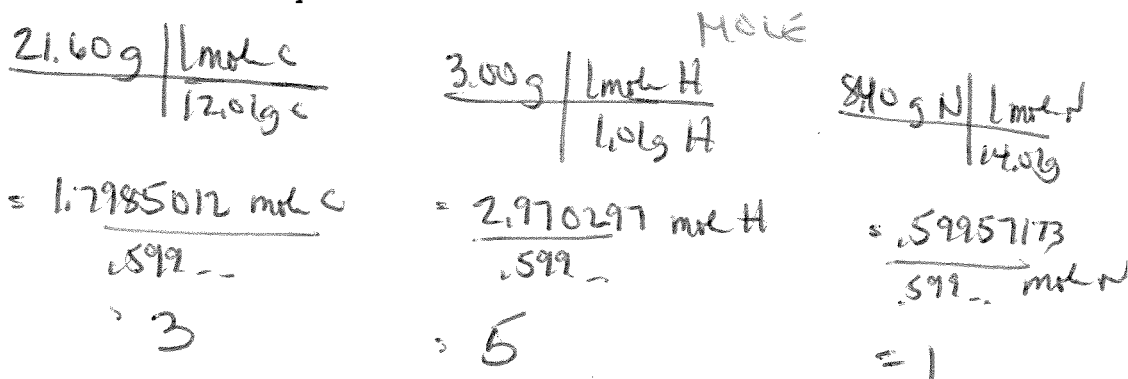 MOLE
21.60 g | 1 mol C
12.01 g C
= 1.7985012 mol C
.599 --
= 3
3.00 g | 1 mol H
1.01 g H
= 2.970297 mol H
.599 --
= 5
8.40 g N | 1 mol N
14.01 g
= .59957173 mol N
.599 --
= 1